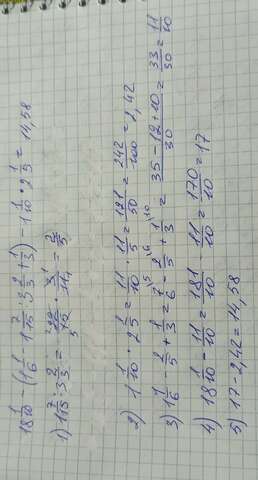 18 1/10 - (1 1/6 - 1 7/15 : 3 2/3 + 1/3) - 1 1/10 · 2 1/5 = 14,58
1) 1 7/15 : 3 2/3 = 22/15 · 3/11 = 2/5
2) 1 1/10 · 2 1/5 = 11/10 · 11/5 = 121/50 = 242/100 = 2,42
3) 1 1/6 - 2/5 + 1/3 = 7/6 - 2/5 + 1/3 = (35 - 12 + 10)/30 = 33/30 = 11/10
4) 18 1/10 - 11/10 = 181/10 - 11/10 = 170/10 = 17
5) 17 - 2,42 = 14,58